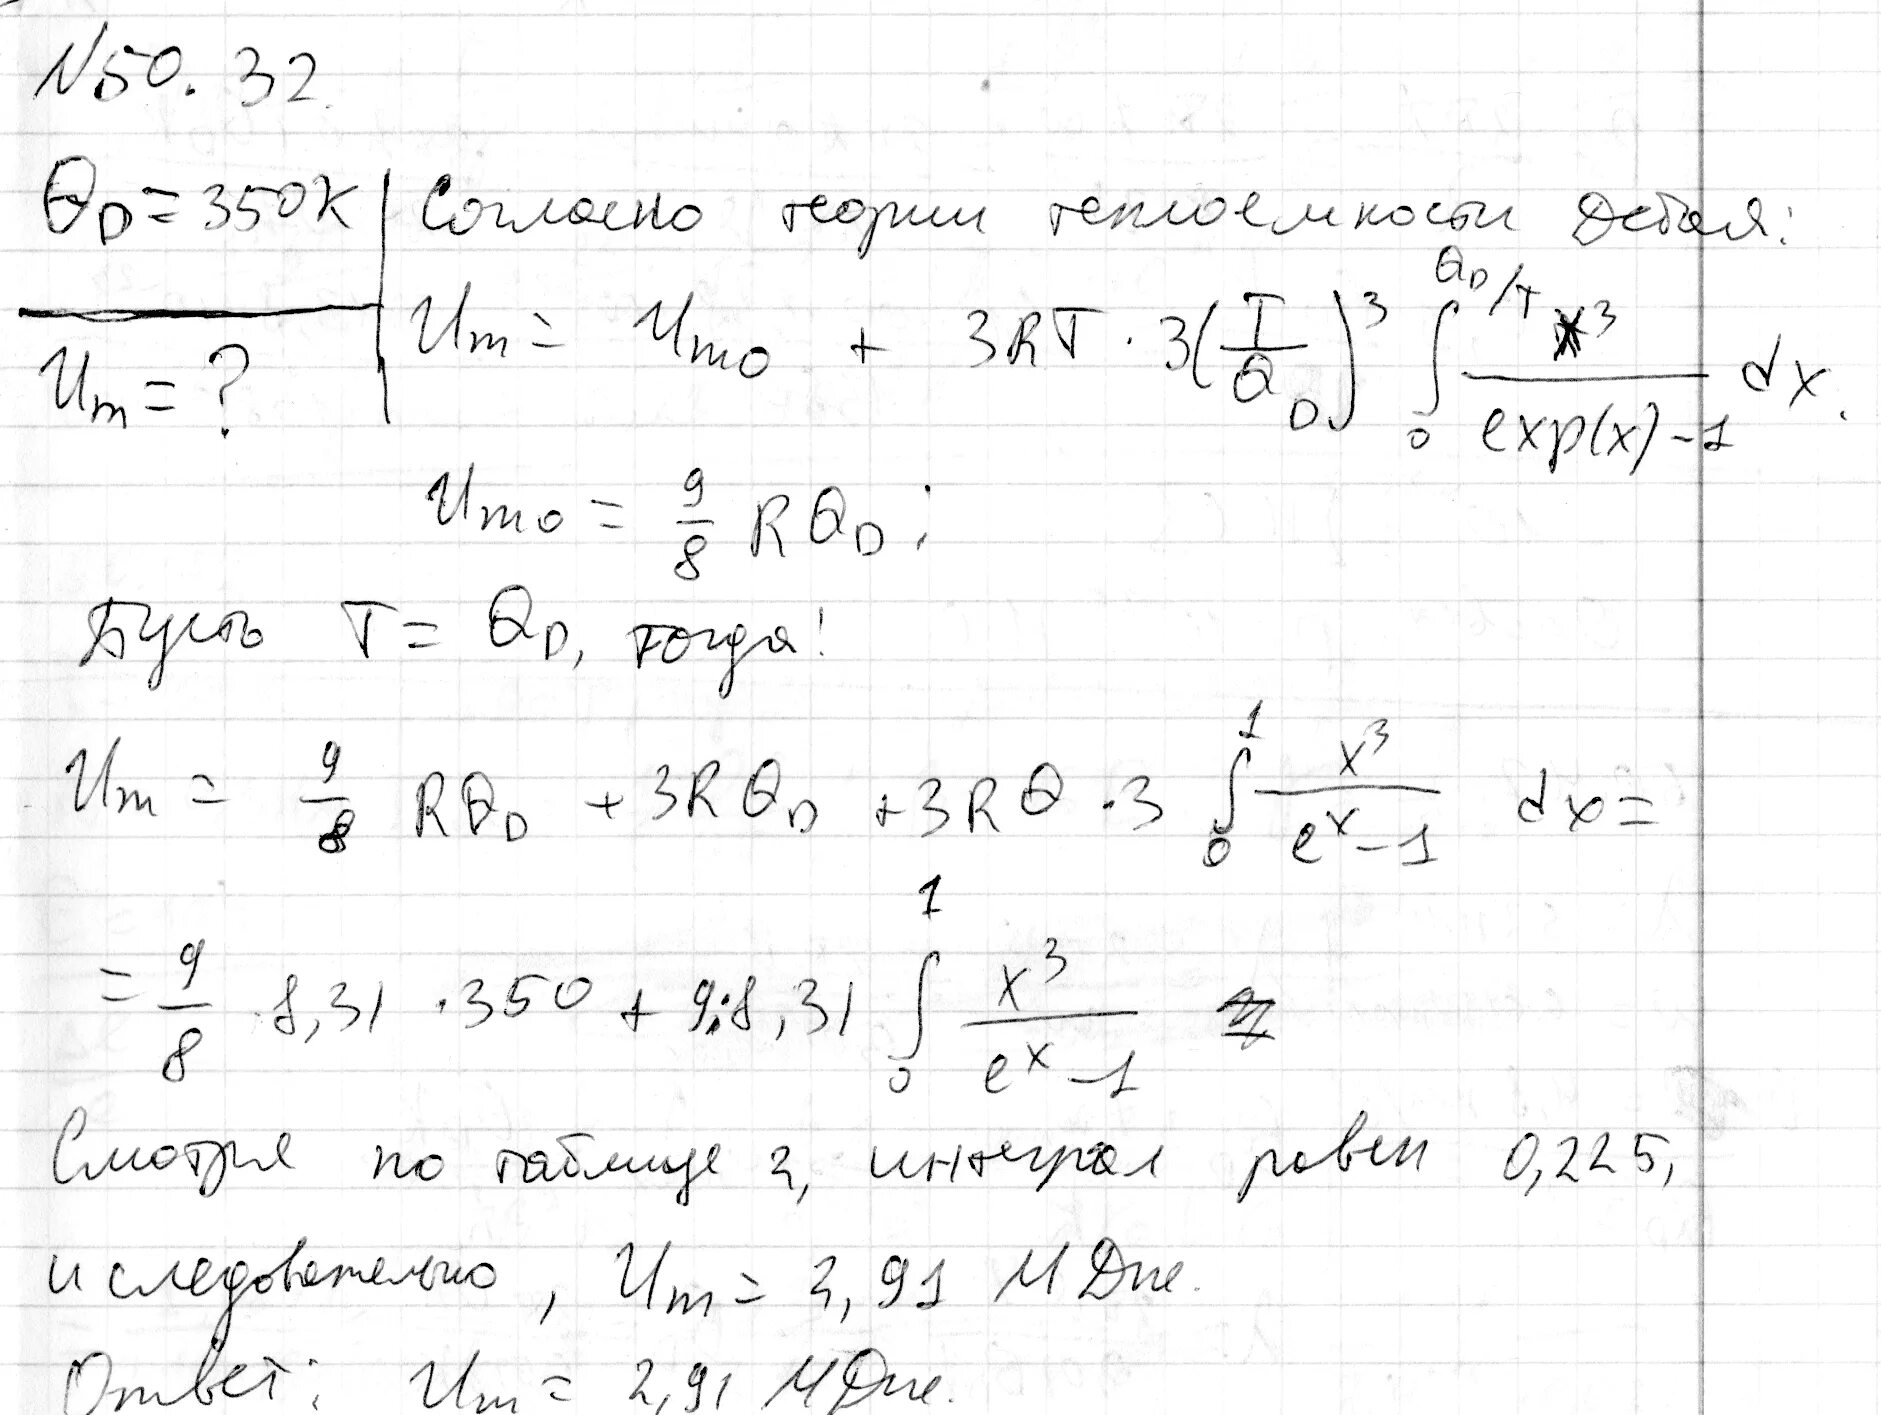 N50. 32.
Θ_D = 350K
Согласно теории теплоемкости Дебая:
U_m = ?
U_m = U_m0 + 3RT · 3(T/Θ_D)^3 ∫_0^{Θ_D/T} x^3/(exp(x)-1) dx.
U_m0 = 9/8 RΘ_D;
Пусть T = Θ_D, тогда:
U_m = 9/8 RΘ_D + 3RΘ_D + 3RΘ · 3 ∫_0^1 x^3/(e^x-1) dx =
= 9/8 · 8,31 · 350 + 9·8,31 ∫_0^1 x^3/(e^x-1)
Смотря по таблице 2, интеграл равен 0,225,
и следовательно, U_m = 2,91 МДж.
Ответ: U_m = 2,91 МДж.